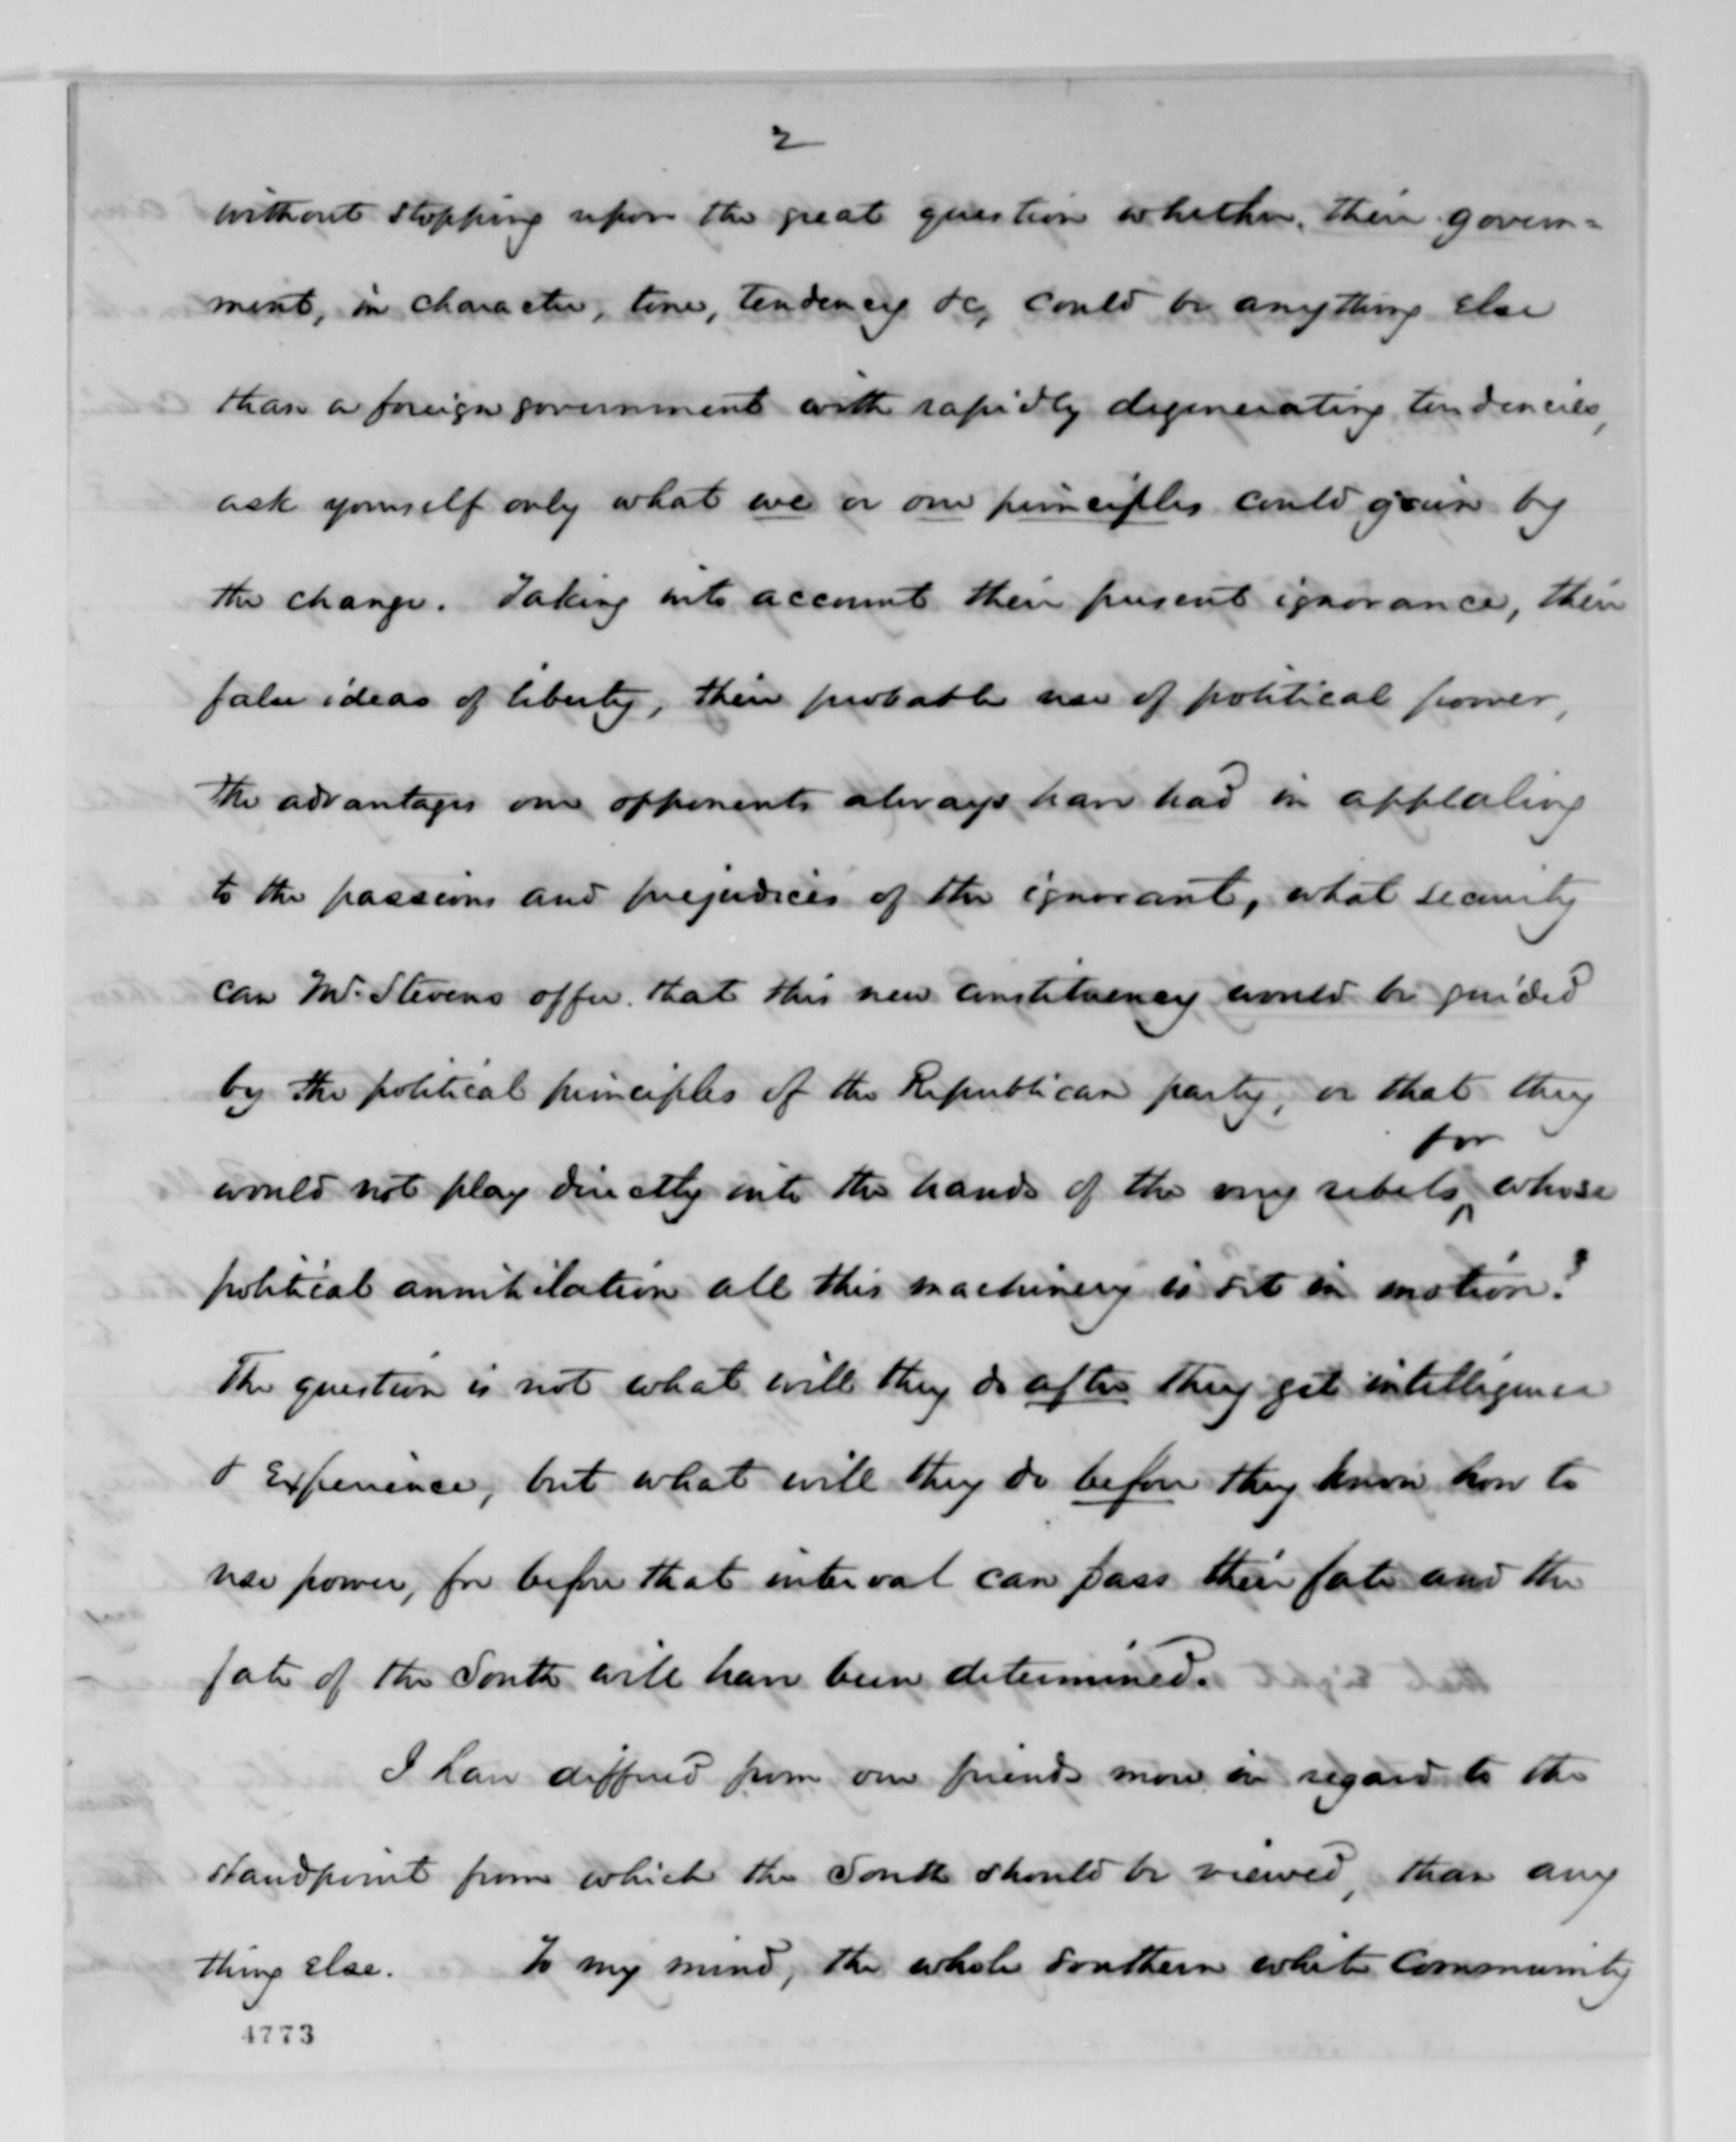 2
without stopping upon the great question whether their govern=
ment, in character, tone, tendency &c, could be anything else
than a foreign government with rapidly degenerating tendencies,
ask yourself only what we or our principles could gain by
the change. Taking into account their present ignorance, their
false ideas of liberty, their probable use of political power,
the advantages our opponents always have had in appealing
to the passions and prejudices of the ignorant, what security
can Mr. Stevens offer that this new constituency would be guided
by the political principles of the Republican party, or that they
for
would not play directly into the hands of the very rebels whose
political annihilation all this machinery is set in motion?
The question is not what will they do after they get intelligence
& experience, but what will they do before they know how to
use power, for before that interval can pass their fate and the
fate of the South will have been determined.
I have differed from our friends more in regard to the
standpoint from which the South should be viewed, than any
thing else. To my mind, the whole southern white community
4773